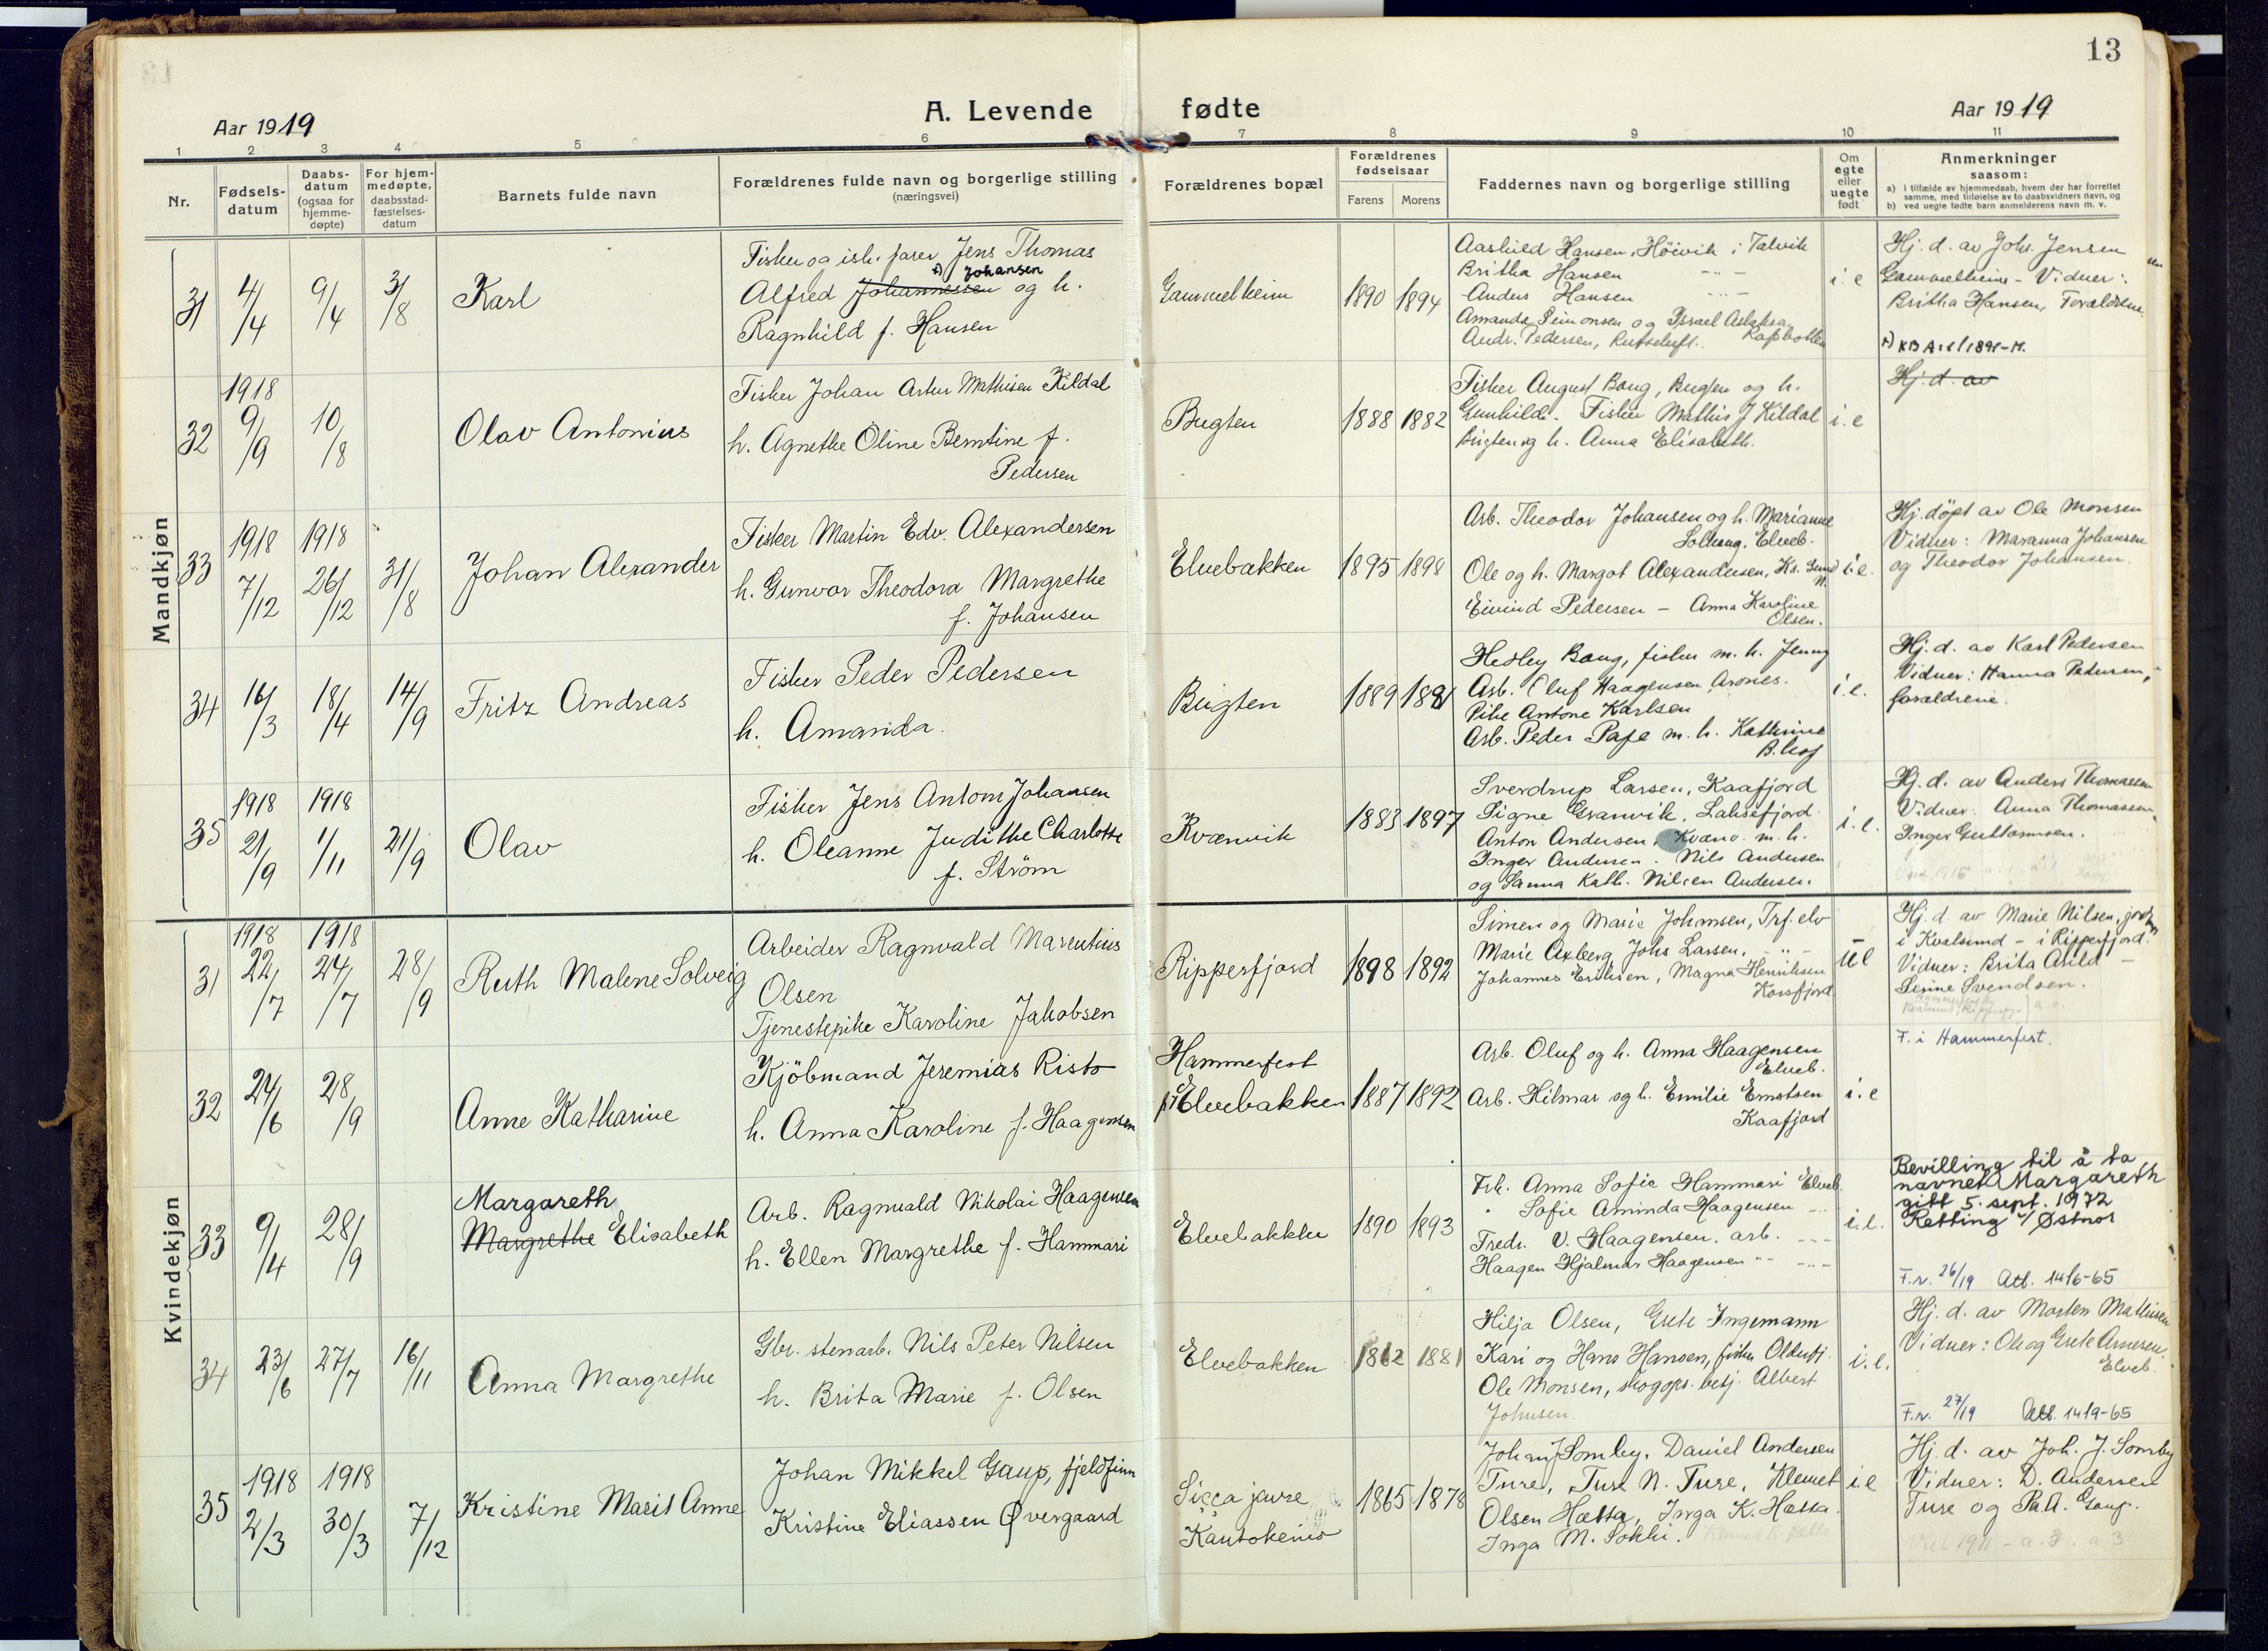 13
Aar 1919
A. Levende fødte
Aar 1919
1 2 3 4 5 6 7 8 9 10 11
Nr.
Fødsels-
datum
Daabs-
datum
(ogsaa for
hjemme-
døpte)
For hjem-
medøpte,
daabsstad-
fæstelses-
datum
Barnets fulde navn
Forældrenes fulde navn og borgerlige stilling
(næringsvei)
Forældrenes bopæl
Forældrenes
fødselsaar
Farens Morens
Faddernes navn og borgerlige stilling
Om
egte
eller
uegte
født
Anmerkninger
saasom:
a) i tilfælde av hjemmedaab, hvem der har forrettet
samme, med tilføielse av to daabsvidners navn, og
b) ved uegte fødte barn anmelderens navn m. v.
Mandkjøn
31 4/4 9/4 3/8 Karl
Fisker og ish. farer Jens Thomas
x) Johansen
Alfred Johannessen og h.
Ragnhild f. Hansen
Gammelheim 1890 1894
Aashild Hansen, Höivik i Talvik
Britha Hansen
Anders Hansen
Amanda Simonsen og Israel
Andr. Pedersen,
i. e
Hj. d. av Johs. Jensen
Gammelheim - Vidner:
Britha Hansen, Forældrene.
32 1918 9/9 10/8 Olav Antonius
Fisker Johan Artur Mathisen Kildal
h. Agnethe Oline Berntine f.
Pedersen
Bugten 1888 1882
Fisker August Bang, Bugten og h.
Gunhild. Fisker Mathis J Kildal
Bugten og h. Anna Elisabeth.
i. e
Hj. d. av
33 1918 7/12 1918 26/12 31/8 Johan Alexander
Fisker Martin Edv. Alexandersen
h. Gunvor Theodora Margrethe
f. Johansen
Elvebakken 1895 1898
Arb. Theodor Johansen og h. Marianne
Elveb.
Ole og h. Margot Alexandersen, Kr. Sund
N.
Eivind Pedersen - Anna Karoline
Olsen.
i. e.
Hj. døpt av Ole Monsen
Vidner: Maranna Johansen
og Theodor Johansen.
34 16/3 18/4 14/9 Fritz Andreas
Fisker Peder Pedersen
h. Amanda.
Bugten 1889 1891
Hedley Bang, fisker m. h. Jenny
Arb. Oluf Haagensen Arones.
Pike Antone Karlsen
Arb. Peder Pape m. h. Kathrine
i. e.
Hj. d. av Karl Pedersen
Vidner: Hanna Pedersen,
forældrene.
35 1918 21/9 1918 1/11 21/9 Olav
Fisker Jens Antom Johansen
h. Oleanne Judithe Charlotte
f. Ström
Kvænvik 1883 1897
Sverdrup Larsen, Kaafjord
Signe Granvik, Laksefjord
Anton Andersen, Kvænv. m. h.
Inger Andersen. Nils Andersen
og Sanna Kath. Nilsen Andersen.
i. e.
Hj. d. av Anders Thomassen
Vidner: Anna Thomassen,
Inger Guttormsen.
Kvindekjøn
31 1918 22/7 1918 24/7 28/9 Ruth Malene Solveig
Arbeider Ragnvald Marentius
Olsen
Tjenestepike Karoline Jakobsen
Ripperfjord 1898 1892
Simen og Marie Johansen, Trf. elv
Marie Axberg Johs Larsen,
Johannes Eriksen, Magna Henriksen
Korsfjord
ue
Hj. d. av Marie Nilsen, jordm
i Kvalsund - i Ripperfjord.
Vidner: Brita Arild -
Senine Svendsen.
32 24/6 28/9 Anne Katharine
Kjöbmand Jeremias Risto
h. Anna Karoline f. Haagensen
Hammerfest
Elvebakken 1887 1892
Arb. Oluf og h. Anna Haagensen
Elveb.
Arb. Hilmar og h. Emilie Ernstsen
Kaafjord
i. e
F. i Hammerfest.
33 9/4 28/9 Margareth
Margrethe Elisabeth
Arb. Ragnvald Nikolai Haagensen
h. Ellen Margrethe f. Hammari
Elvebakken 1890 1893
Frk. Anna Sofie Hammari Elveb.
" Sofie Aminda Haagensen
Fredr. V. Haagensen, arb.
Haagen Hjalmar Haagensen
i. e.
Bevilling til å ta
navnet Margareth
gitt 5. sept. 1972
Retting v/ Østnor
F.n. 26/19 Att. 14/6-65
34 23/6 27/7 16/11 Anna Margrethe
Gbr. stenarb. Nils Peter Nilsen
h. Brita Marie f. Olsen
Elvebakken 1862 1881
Hilja Olsen, Grete Ingemann
Kari og Hans Hansen, fisker Olderfj.
Ole Monsen, skogops. betj. Albert
Johnsen.
i. e.
Hj. d. av Morten Mathisen
Vidner: Ole og Grete Arnesen.
Elveb.
F.n. 27/19 Att. 14/9-65
35 1918 2/3 1918 30/3 7/12 Kristine Marit Anne
Johan Mikkel Gaup, fjeldfinn
Kristine Eliassen Øvergaard
Siççajavre
Kautokeino 1865 1878
Johan J Somby. Daniel Andersen
Ture, Ture N. Ture, Klemet
Olsen Hætta, Inga K. Hætta.
Inga M. Sokki.
i e
Hj. d. av Joh. J. Somby
Vidner: D. Andersen
Ture og P. A. Gaup.